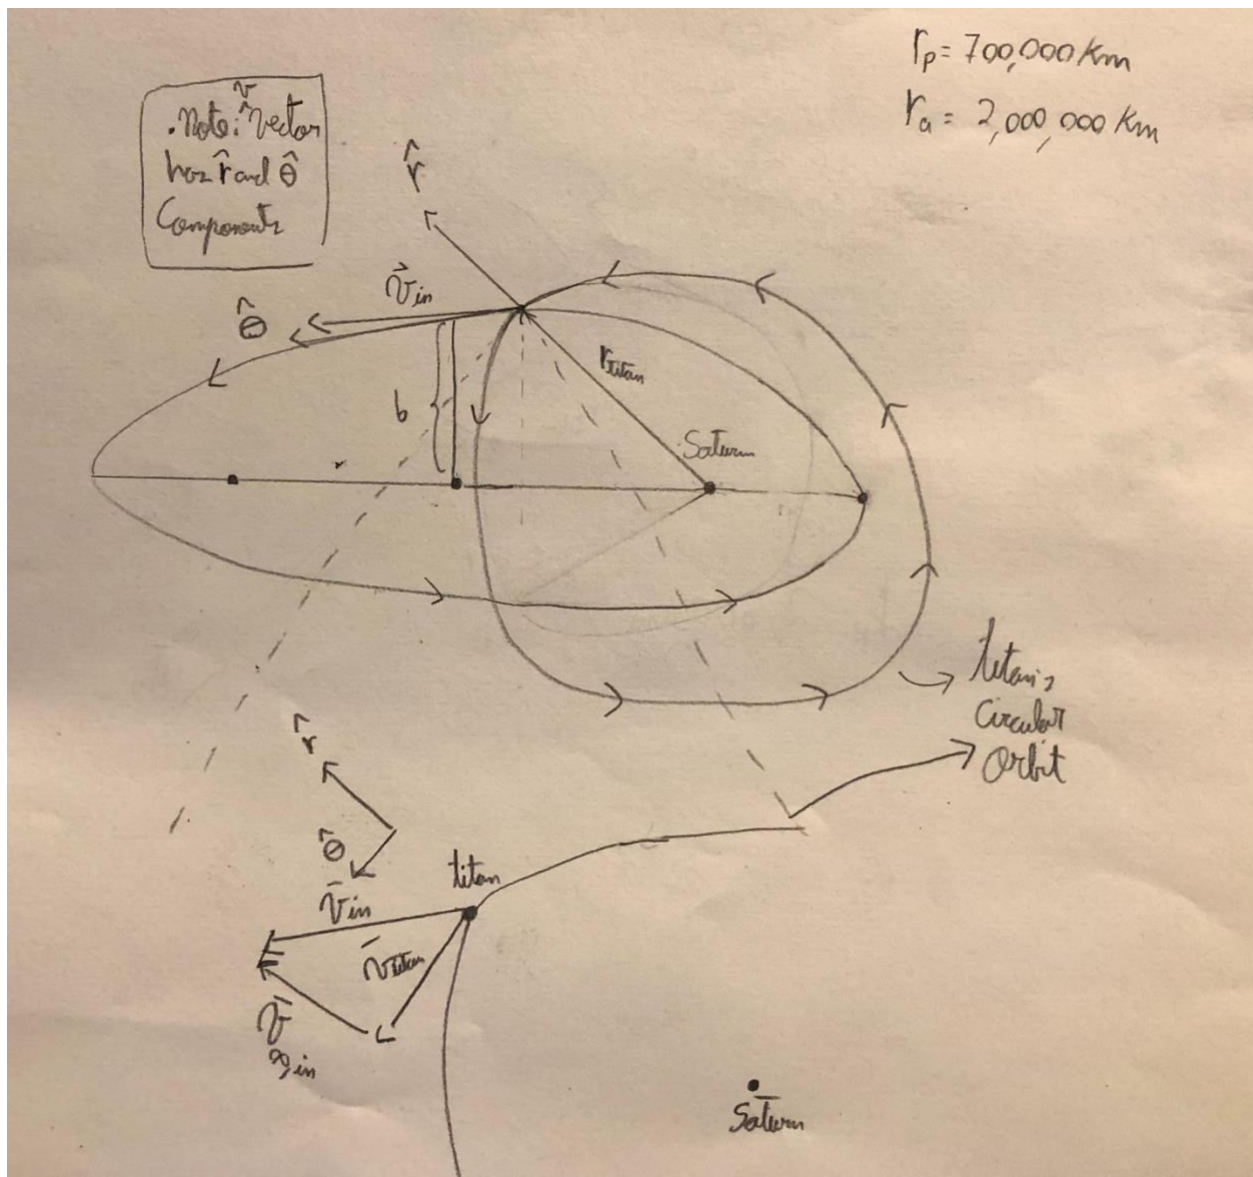 r_p = 700,000 Km
r_a = 2,000,000 Km
v
. Note: Vector
has r̂ and θ̂
Components
r̂
v̄_in
θ̂
b
r_titan
Saturn
titan's
Circular
Orbit
r̂
θ̂
titan
v̄_in
v̄_titan
v̄_∞,in
Saturn